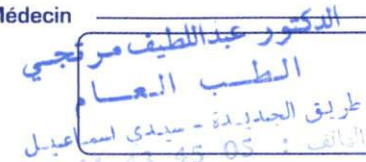 Médecin
الدكتور عبداللطيف مرتجي
الطب العام
طريق الجديدة - سيدي اسماعيل
الهاتف : 05 45